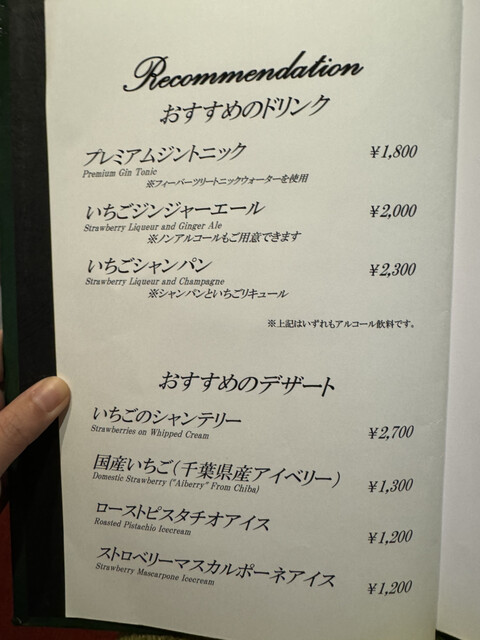 Recommendation
おすすめのドリンク
プレミアムジントニック ￥1,800
Premium Gin Tonic
※フィーバーツリートニックウォーターを使用
いちごジンジャーエール ￥2,000
Strawberry Liqueur and Ginger Ale
※ノンアルコールもご用意できます
いちごシャンパン ￥2,300
Strawberry Liqueur and Champagne
※シャンパンといちごリキュール
※上記はいずれもアルコール飲料です。
おすすめのデザート
いちごのシャンテリー ￥2,700
Strawberries on Whipped Cream
国産いちご(千葉県産アイベリー) ￥1,300
Domestic Strawberry ("Aiberry" From Chiba)
ローストピスタチオアイス ￥1,200
Roasted Pistachio Icecream
ストロベリーマスカルポーネアイス ￥1,200
Strawberry Mascarpone Icecream